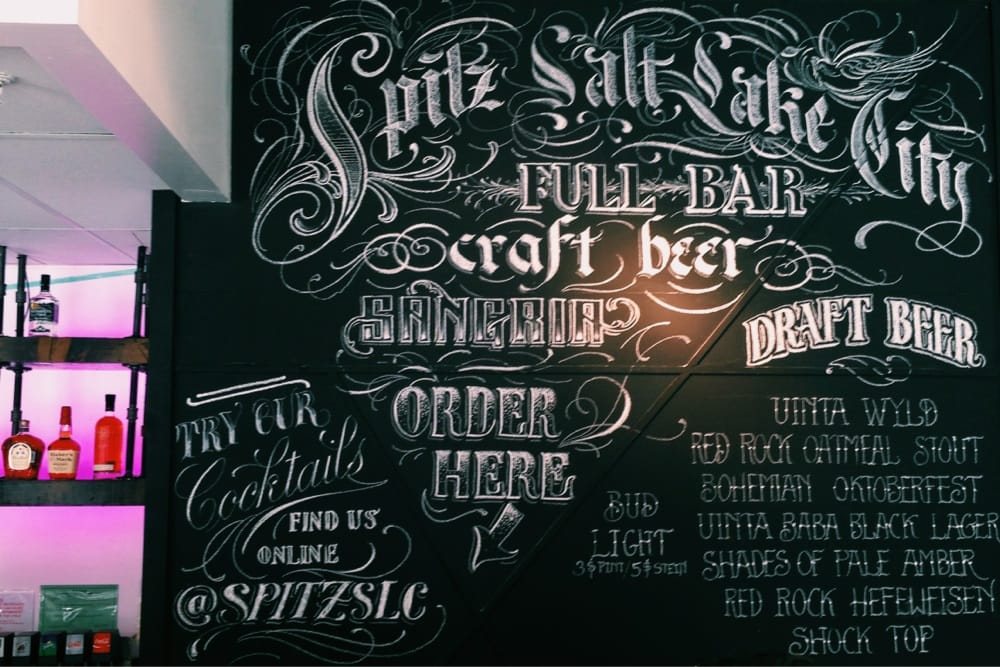 Spitz Salt Lake City
FULL BAR
craft beer
SANGRIA
DRAFT BEER
ORDER
HERE
TRY OUR
Cocktails
FIND US
ONLINE
@SPITZSLC
BUD
LIGHT
3$ PINT/5$ STEIN
UINTA WYLD
RED ROCK OATMEAL STOUT
BOHEMIAN OKTOBERFEST
UINTA BABA BLACK LAGER
SHADES OF PALE AMBER
RED ROCK HEFEWEISEN
SHOCK TOP